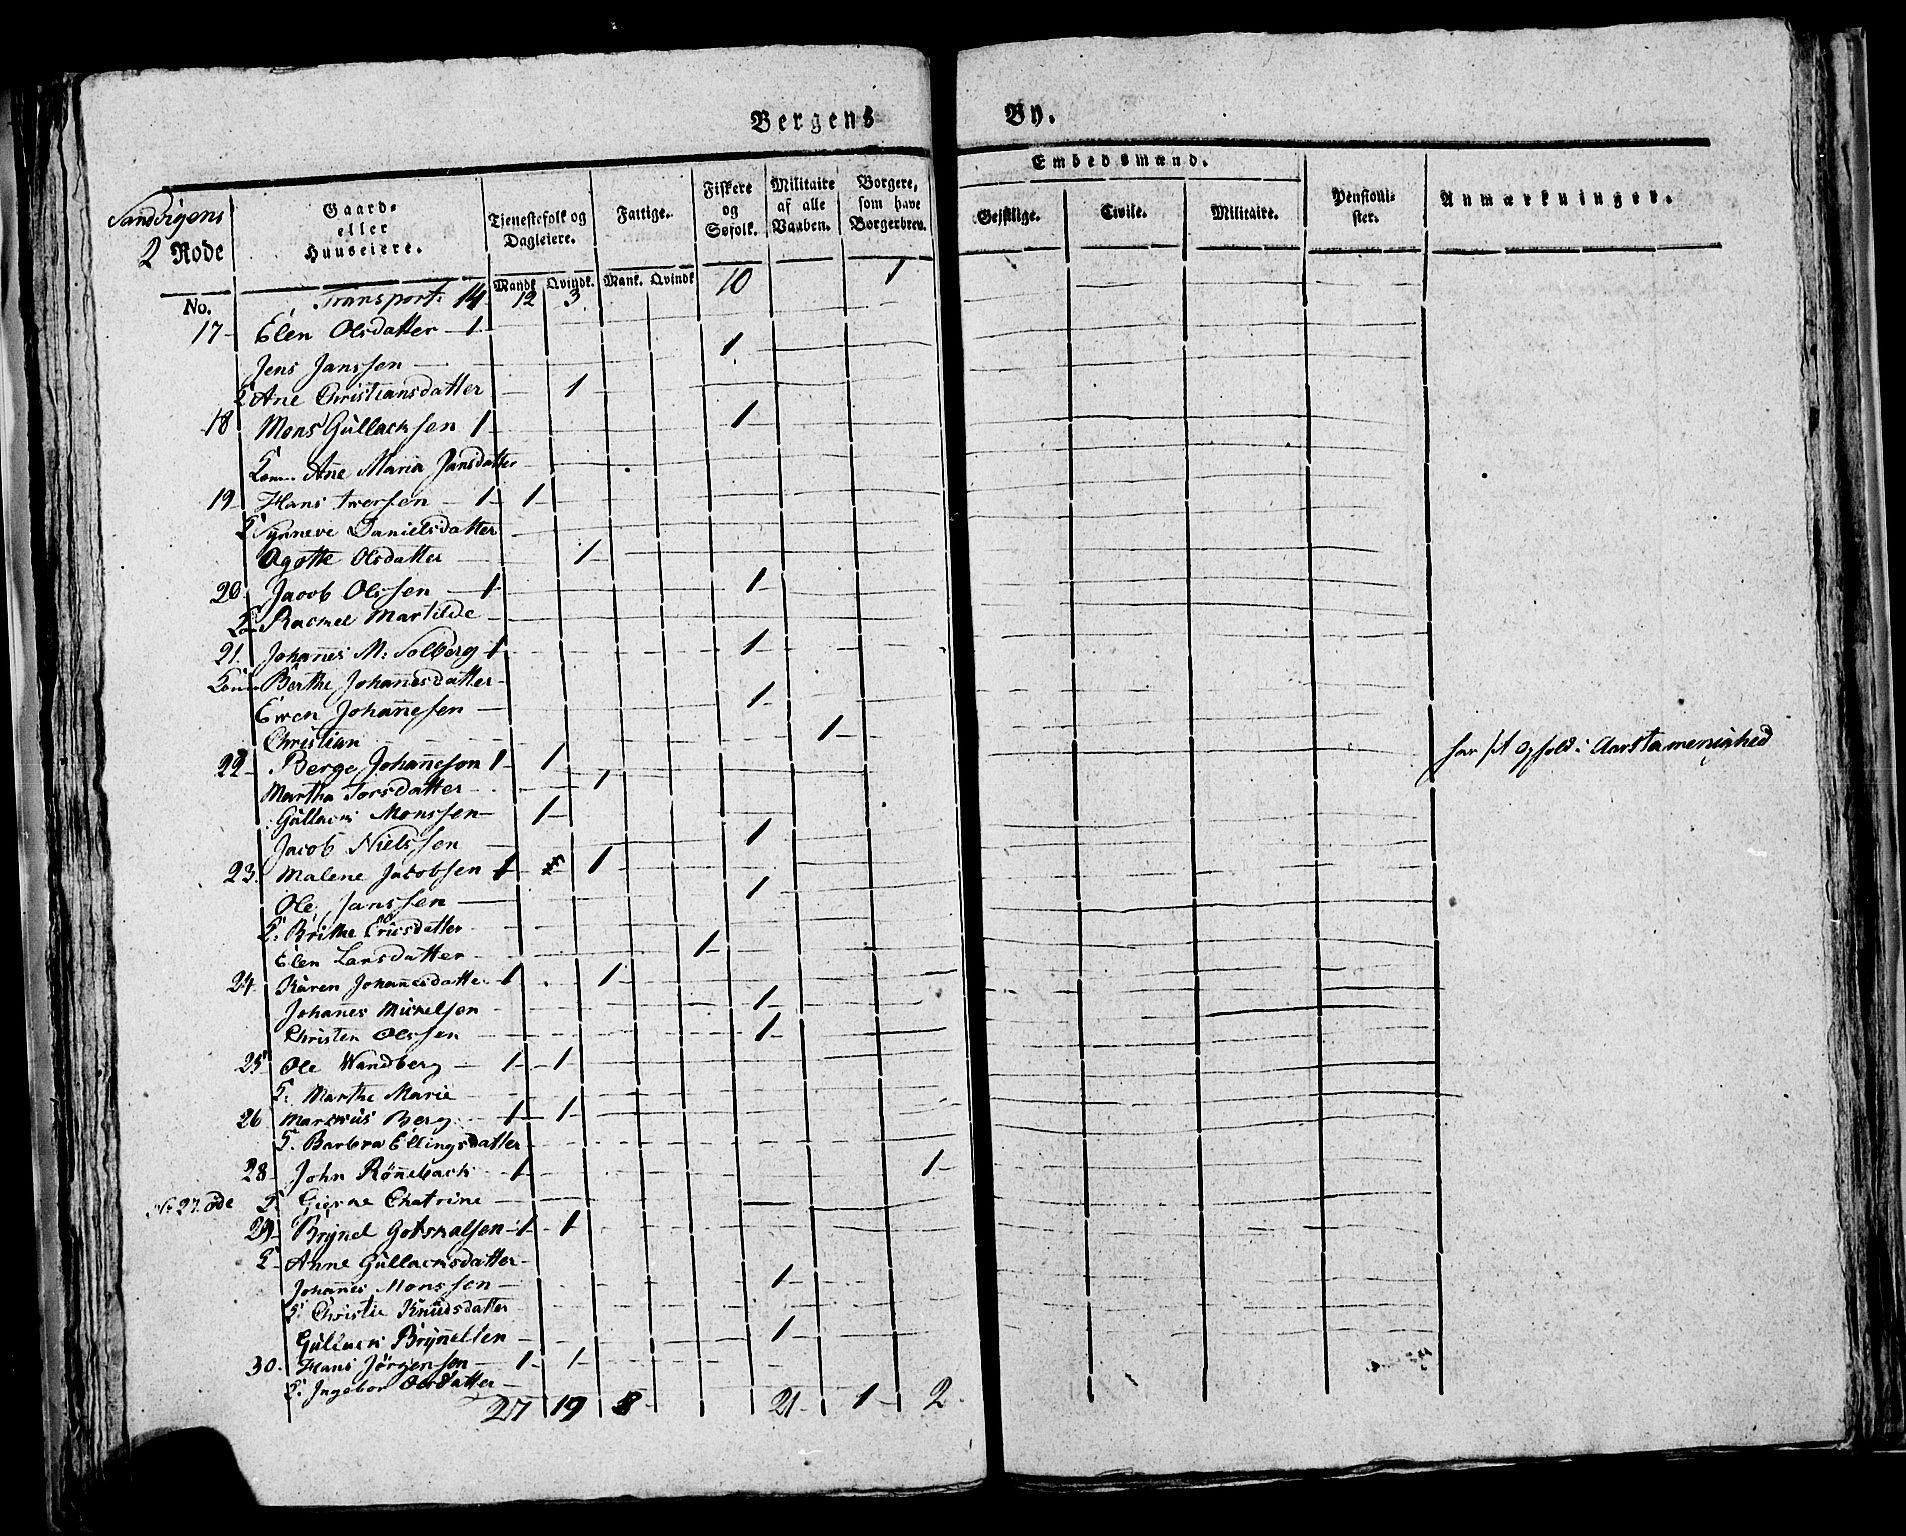 Bergens By.
Sandvigens
2 Rode
No.
Gaard-
eller
Huuseiere.
Tjenestefolk og
Dagleiere.
Mandk. Qvindk.
Fattige.
Mank. Qvindk
Fiskere
og
Søfolk.
Militaire
af alle
Vaaben.
Borgere,
som have
Borgerbrev.
Embedsmænd.
Geistlige. Civile. Militaire.
Pensioni-
ster.
Anmærkninger.
Transport: 14 12 3 10 1
17 Elen Olsdatter 1
Jens Janssen 1
K Ane Christiansdatter 1
18 Mons Gullacksen 1 1
Kone Ane Maria Jansdatter
19 Hans Iversen 1 1
K Synneve Danielsdatter
Agotte Olsdatter 1
20 Jacob Olssen 1 1
Kone Rachel Martilde
21. Johannes M: Solberg 1 1
Kone Berthe Johannesdatter
Ewen Johannesen 1
Christian 1
22 Berge Johanneson 1 1 har sit ophold i Aarstamenighed
Martha Torsdatter 1
Gullack Monssen 1
Jacob Nielssen 1
23. Malene Jacobsen 1 1
Ole Janssen 1
K: Brithe Ericsdatter
Elen Larsdatter 1
24 Karen Johannesdatter 1 1
Johanes Mickelsen 1
Christen Olssen 1
25 Ole Wandberg 1 1
K: Marthe Marie
26 Marckus Berg 1 1
K. Barbra Ellingsdatter
28 John Rønnebach 1 1
No 27. øde K. Gierne Chatrine
29 Brynel Gotskalsen 1 1
K Anne Gullacksdatter
Johannes Monssen 1
K Christie Knudsdatter
Gullack Brynelsen 1
30. Hans Jørgensen 1 1
K. Ingebor Olsdatter
27 19 8 21 1 2